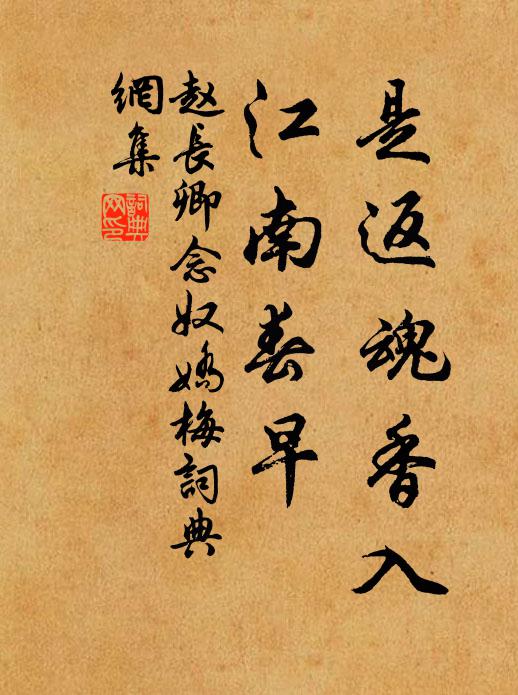 是返魂香入
江南春早
赵長卿念奴嬌梅詞典
網集
詞典
网印